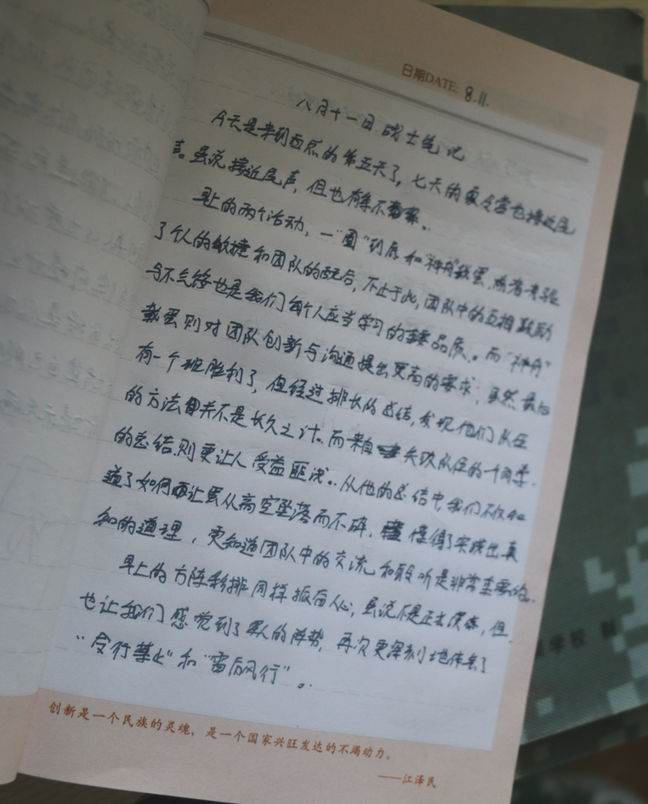 日期DATE: 8.11.
八月十一日 战士笔记
今天是来到西点的第五天了,七天的夏令营也接近尾
声。虽说接近尾声,但也有许不
早上的两个活动,一"圆"到底和"神舟"救蛋,考验
了个人的敏捷和团队的配合,不止于此,团队中的互相鼓励
与不气馁也是我们每个人应当学习的重要品质。而"神舟"
救蛋则对团队创新与沟通提出更高的要求,虽然最后
有一个班胜利了,但经过排长的总结,发现他们队伍
的方法并不是长久之计。而来自失败队伍的一个同学
的总结则更让人受益匪浅。从他的总结中我们不仅知
道了如何让蛋从高空坠落而不碎,懂得了实践出真
知的道理,更知道团队中的交流和聆听是非常重要的。
早上的方阵彩排同样振奋人心,虽说不是正式演练,但
也让我们感觉到了军人的阵势,再次更深刻地体会了
"令行禁止"和"雷厉风行"。
创新是一个民族的灵魂,是一个国家兴旺发达的不竭动力。
——江泽民
学校 制